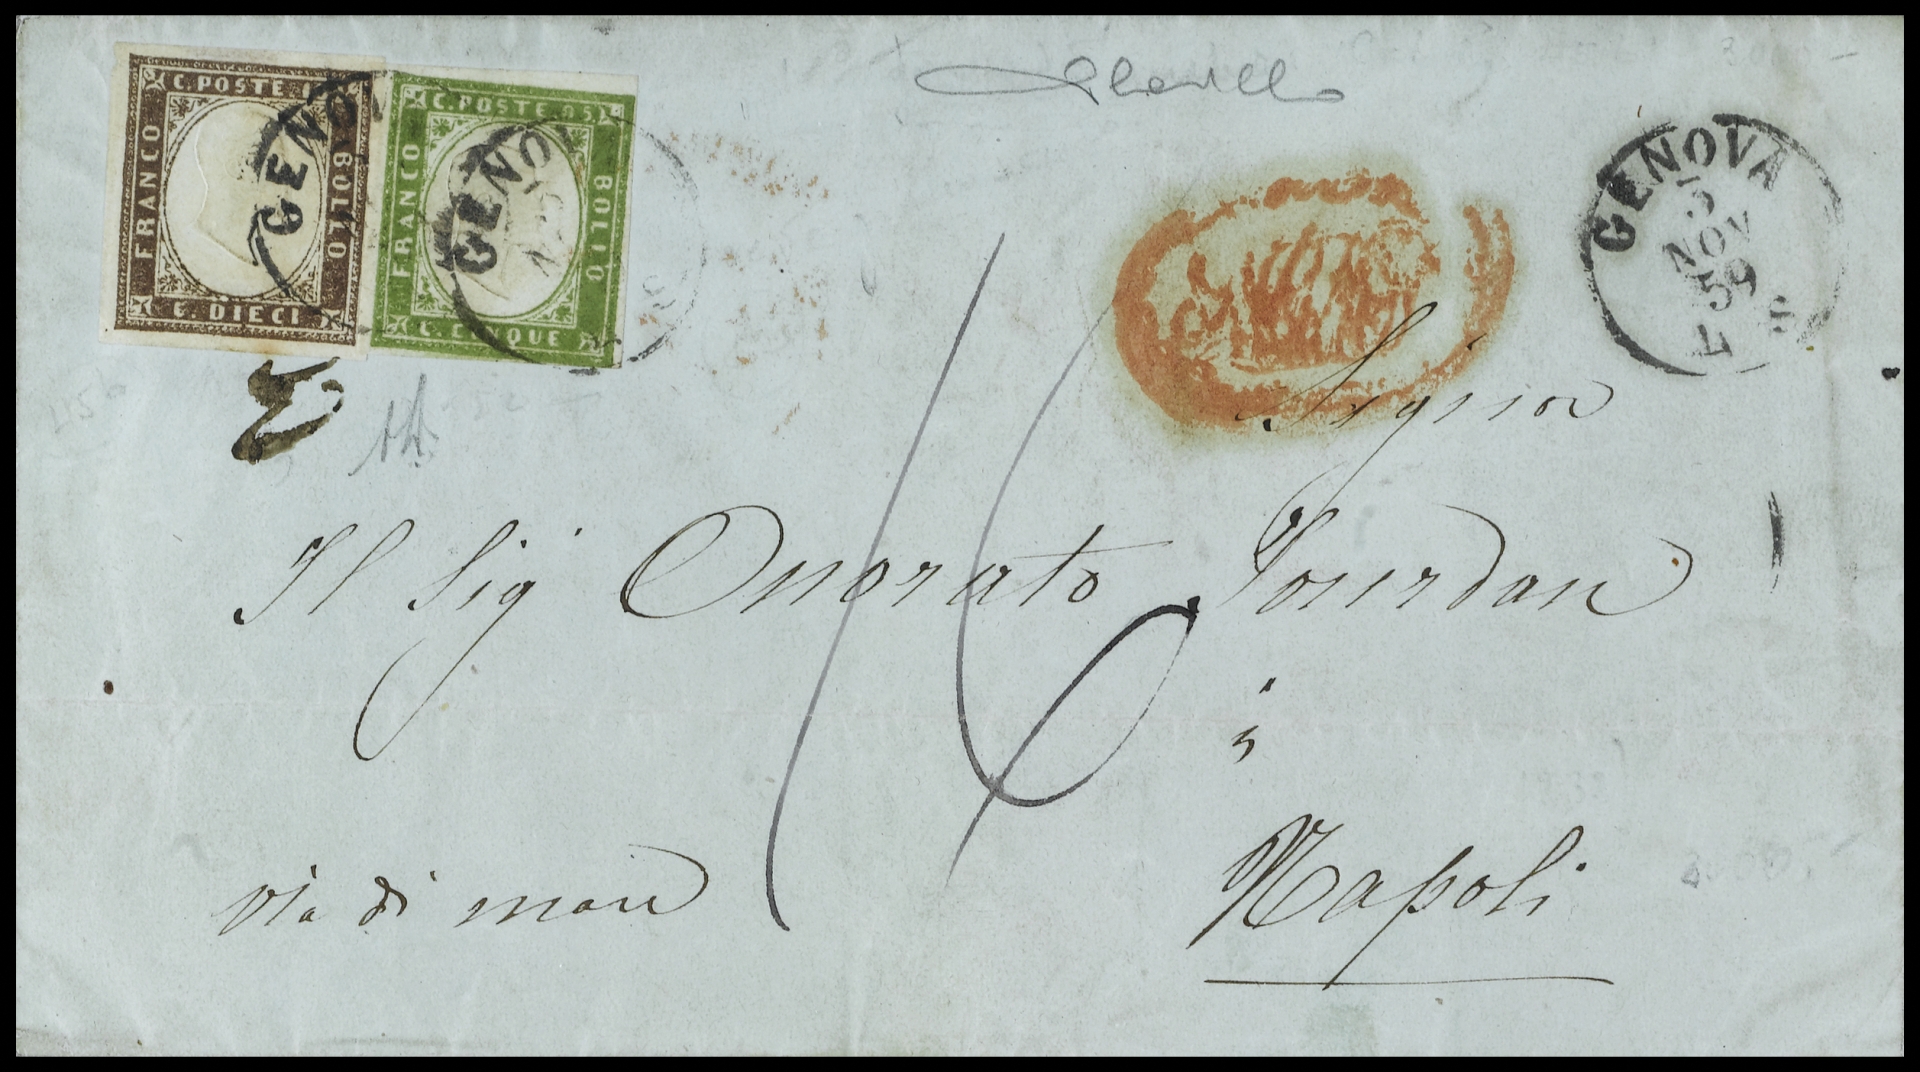 C. POSTE 10
FRANCO
BOLLO
C. DIECI
C. POSTE 05
FRANCO
BOLLO
C. CINQUE
GENOVA
GENOVA
GENOVA
5
NOV
59
16
Signor
Il Sig Onorato Jourdan
à
Napoli
via di mare